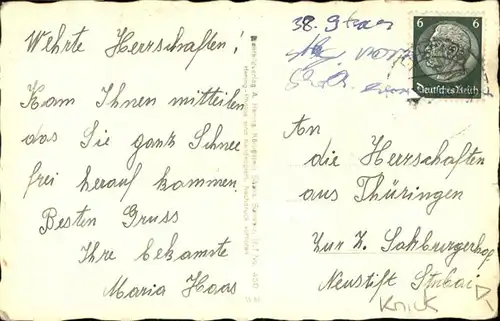 Wehrte Herrschaften!
Kam Ihnen mitteilen
das Sie ganz Schnee
frei herauf kommen.
Besten Gruss
Ihre bekamste
Maria Haas
38. 9
6 6
Deutsches Reich
An
die Herrschaften
aus Thüringen
Zur Z. Salzburgerhof
Neustift Stubai
Knick